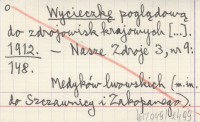 Wycieczkę poglądową
do zdrojowisk krajowych [...].
1912. — Nasze Zdroje 3, nr 9:
148.
Medyków lwowskich (m.in.
do Szczawnicy i Zakopanego).